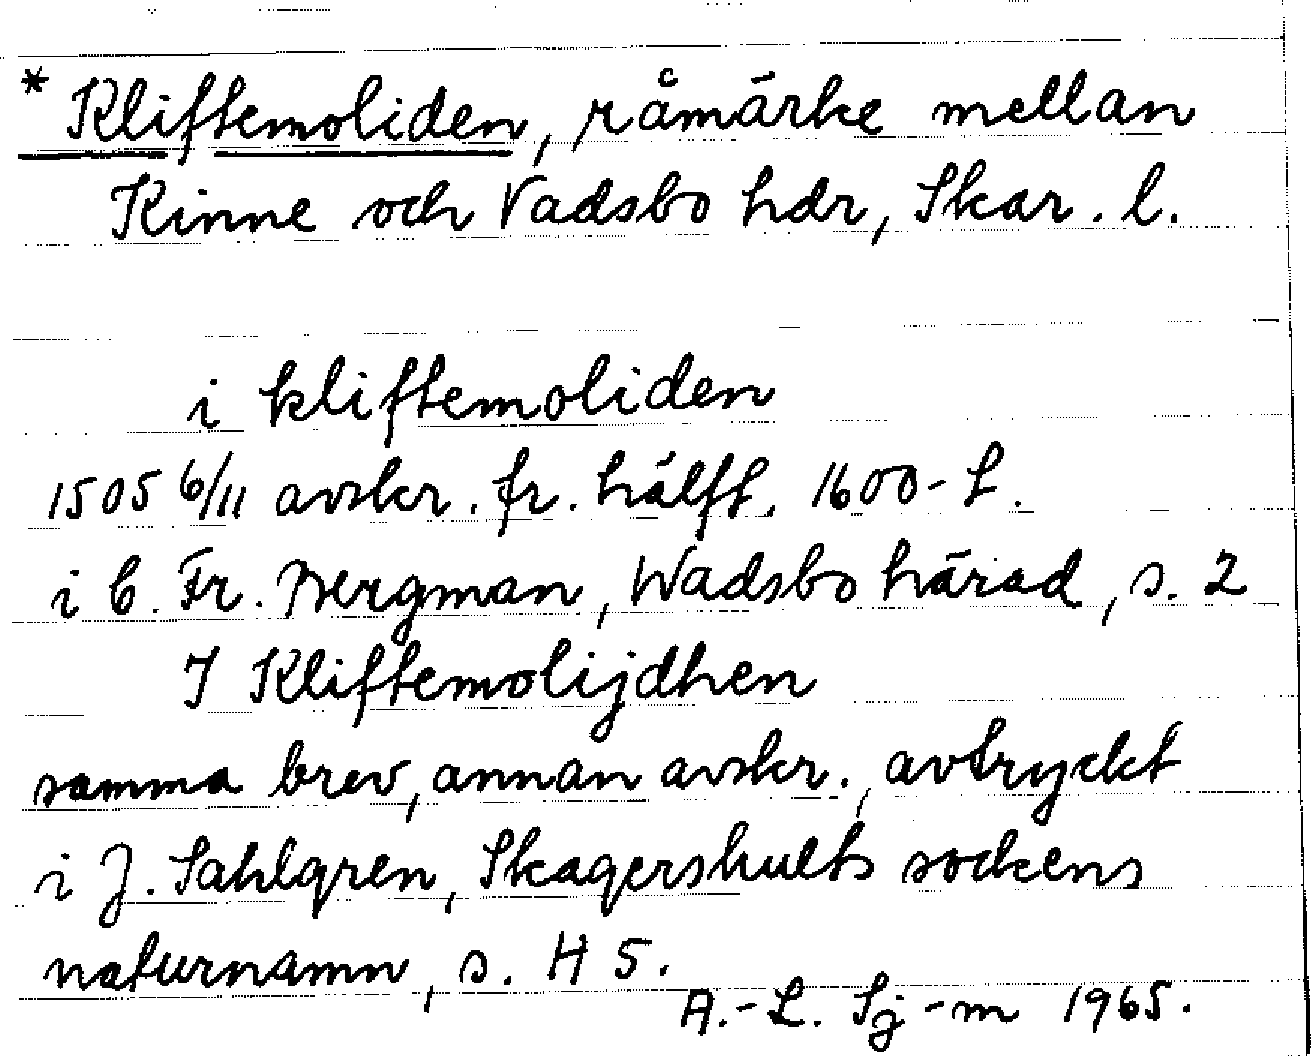 * Kliftemoliden, råmärke mellan
Kinne och Vadsbo hdr, Skar. l.
i kliftemoliden
1505 6/11 avskr. fr. hälft. 1600-t.
i C. Fr. Bergman, Wadsbo härad, s. 2
I Kliftemolijdhen
samma brev, annan avskr., avtryckt
i J. Sahlgren, Skagershults sockens
naturnamn, s. H 5.
A.-L. Sj-m 1965.